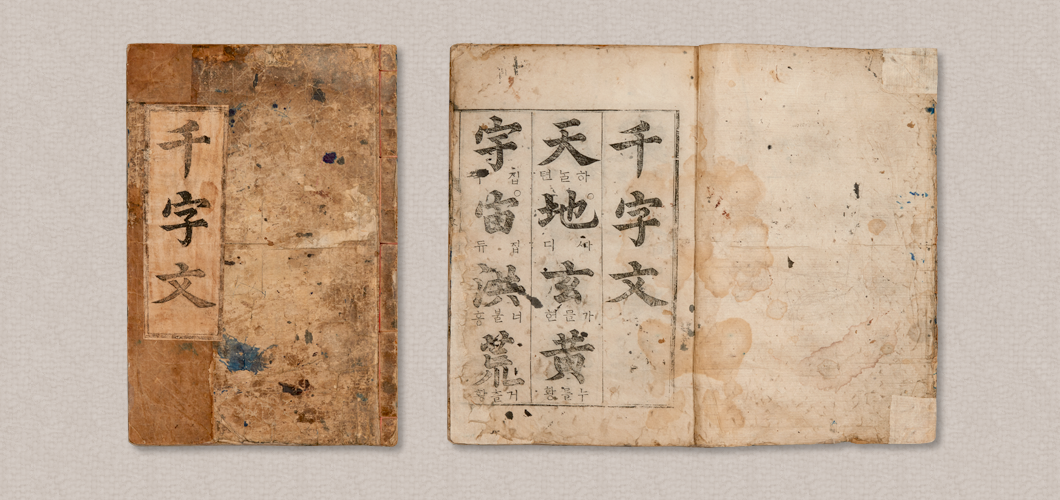 千字文
千字文
天
하ᄂᆞᆯ 텬
地
ᄯᅡ 디
玄
가믈 현
黃
누를 황
宇
집
宙
집 듀
洪
너블 홍
荒
거츨 황